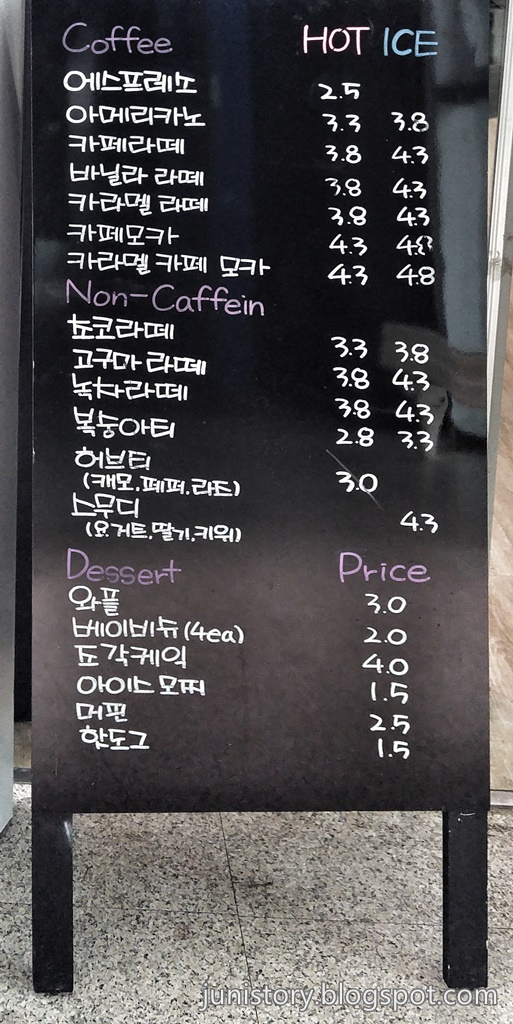 Coffee HOT ICE
에스프레소 2.5
아메리카노 3.3 3.8
카페라떼 3.8 4.3
바닐라 라떼 3.8 4.3
카라멜 라떼 3.8 4.3
카페모카 4.3 4.8
카라멜 카페 모카 4.3 4.8
Non-Caffein
초코라떼 3.3 3.8
고구마 라떼 3.8 4.3
녹차라떼 3.8 4.3
복숭아티 2.8 3.3
허브티
(캐모.페퍼.라즈) 3.0
스무디
(요거트.딸기.키위) 4.3
Dessert Price
와플 3.0
베이비슈(4ea) 2.0
조각케익 4.0
아이스모찌 1.5
머핀 2.5
핫도그 1.5
junistory.blogspot.com